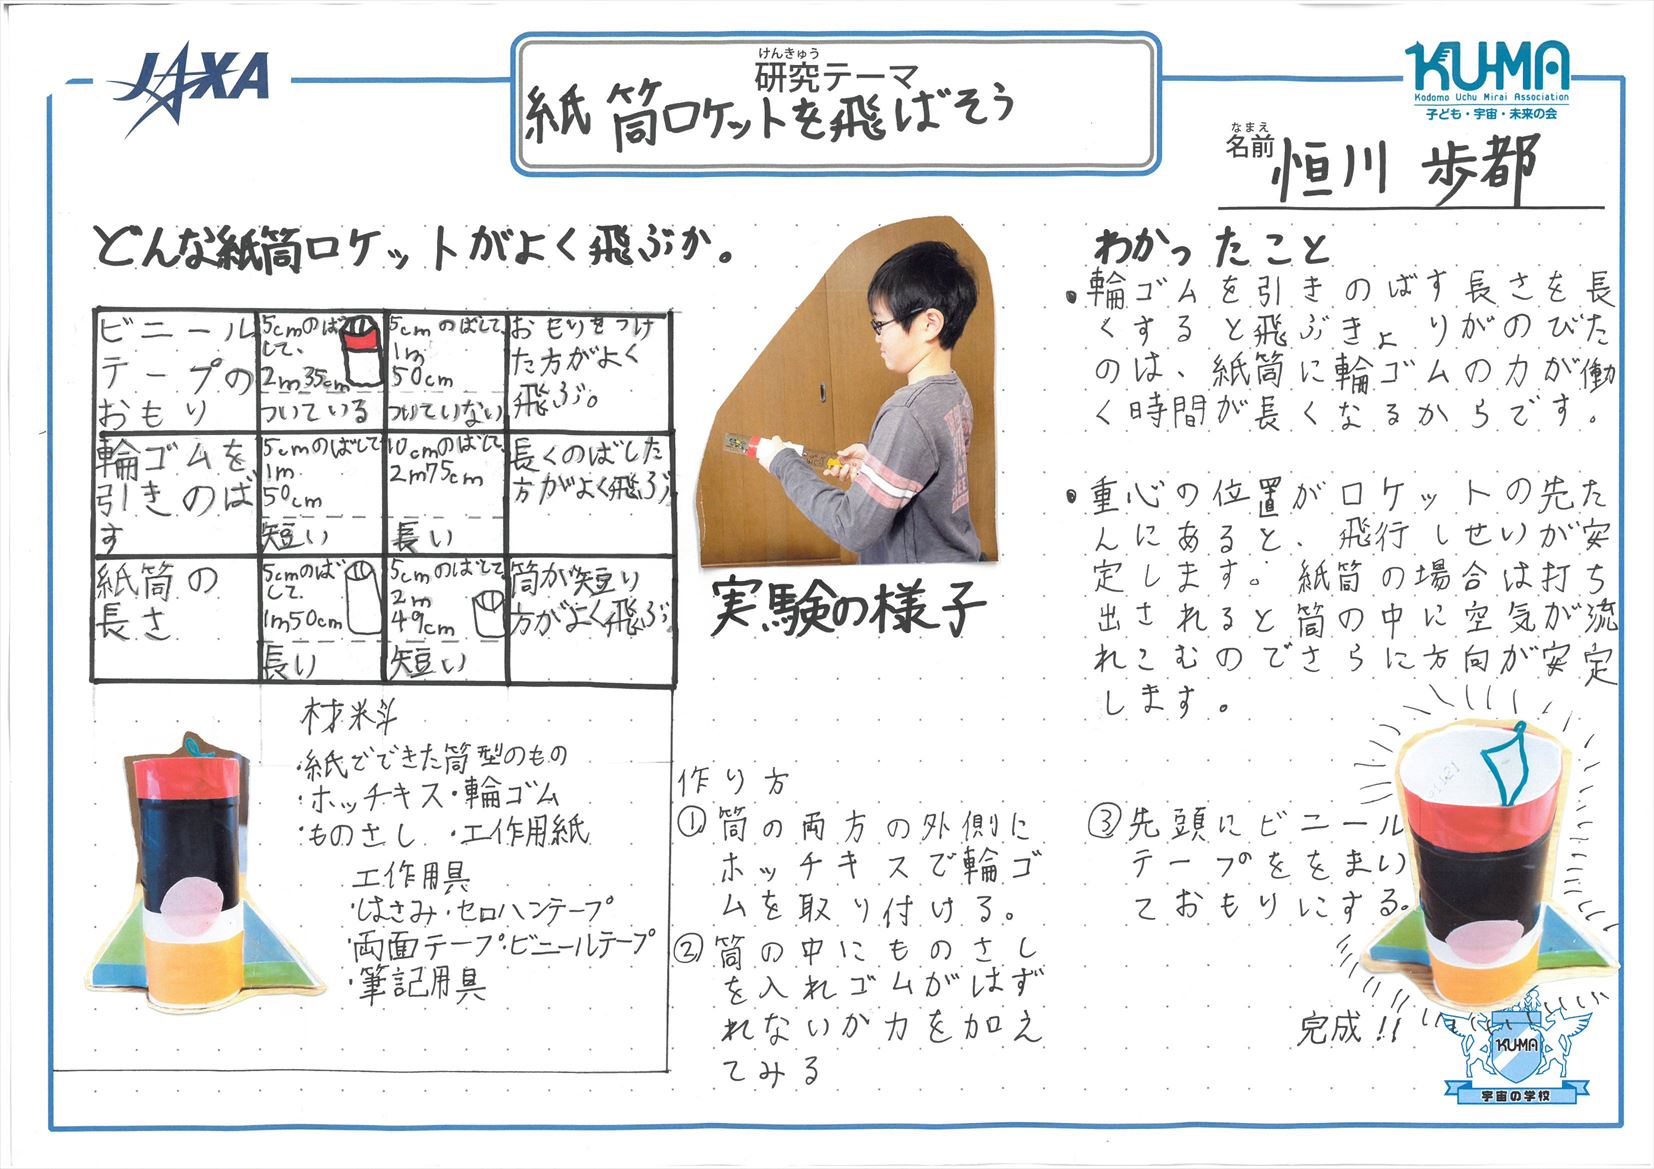 JAXA
けんきゅう
研究テーマ
紙筒ロケットを飛ばそう
KU-MA
Kodomo Uchu Mirai Association
子ども・宇宙・未来の会
なまえ
名前 恒川 歩都
どんな紙筒ロケットがよく飛ぶか。
ビニール
テープの
おもり
5cmのば
して、
2m35cm
ついている
5cmのばして、
1m
50cm
ついていない
おもりをつけ
た方がよく
飛ぶ。
輪ゴムを
引きのば
す
5cmのばして
1m
50cm
短い
10cmのばして、
2m75cm
長い
長くのばした
方がよく飛ぶ
紙筒の
長さ
5cmのば
して、
1m50cm
長い
5cmのばして、
2m
49cm
短い
筒が短い
方がよく飛ぶ
実験の様子
わかったこと
・輪ゴムを引きのばす長さを長
くすると飛ぶきょりがのびた
のは、紙筒に輪ゴムの力が働
く時間が長くなるからです。
・重心の位置がロケットの先た
んにあると、飛行しせいが安
定します。紙筒の場合は打ち
出されると筒の中に空気が流
れこむのでさらに方向が安定
します。
材料
・紙でできた筒型のもの
・ホッチキス・輪ゴム
・ものさし ・工作用紙
工作用具
・はさみ・セロハンテープ
・両面テープ・ビニールテープ
・筆記用具
作り方
①筒の両方の外側に
ホッチキスで輪ゴ
ムを取り付ける。
②筒の中にものさし
を入れゴムがはず
れないか力を加え
てみる
③先頭にビニール
テープををまい
ておもりにする。
完成!!
KU-MA
宇宙の学校